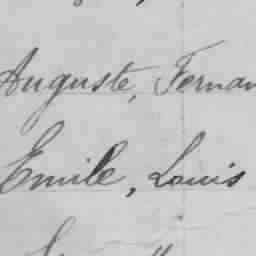 Auguste, Fernan
Emile, Louis